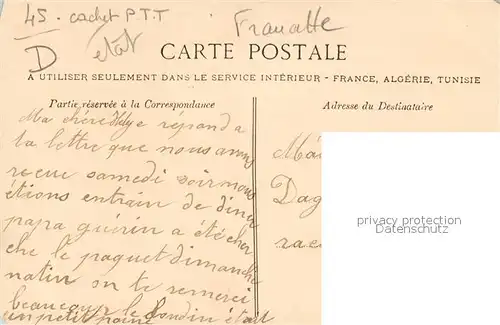 45. cachet P.T.T
état
D
CARTE POSTALE
A UTILISER SEULEMENT DANS LE SERVICE INTÉRIEUR - FRANCE, ALGÉRIE, TUNISIE
Partie réservée à la Correspondance
Adresse du Destinataire
Ma chère je répond a
ta lettre que nous avons
recue samedi soir nous
étions entrain de diner
papa guérin a été cher
che le paquet dimanche
matin on te remerci
beaucoup le boudin était
un petit
Dag
privacy protection
Datenschutz